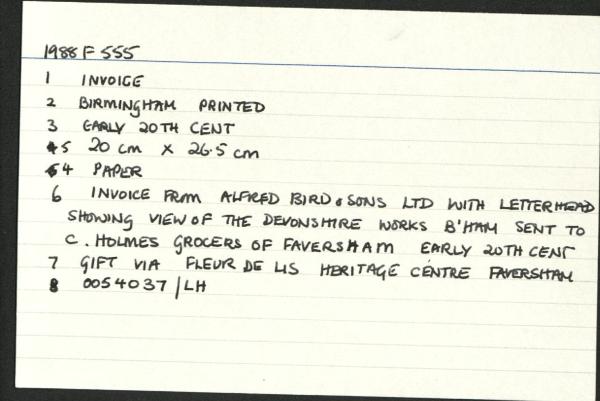 1988 F 555
1 INVOICE
2 BIRMINGHAM PRINTED
3 EARLY 20TH CENT
5 20 cm x 26.5 cm
4 PAPER
6 INVOICE FROM ALFRED BIRD & SONS LTD WITH LETTERHEAD
SHOWING VIEW OF THE DEVONSHIRE WORKS B'HAM SENT TO
C. HOLMES GROCERS OF FAVERSHAM EARLY 20TH CENT
7 GIFT VIA FLEUR DE LIS HERITAGE CENTRE FAVERSHAM
8 0054037/LH